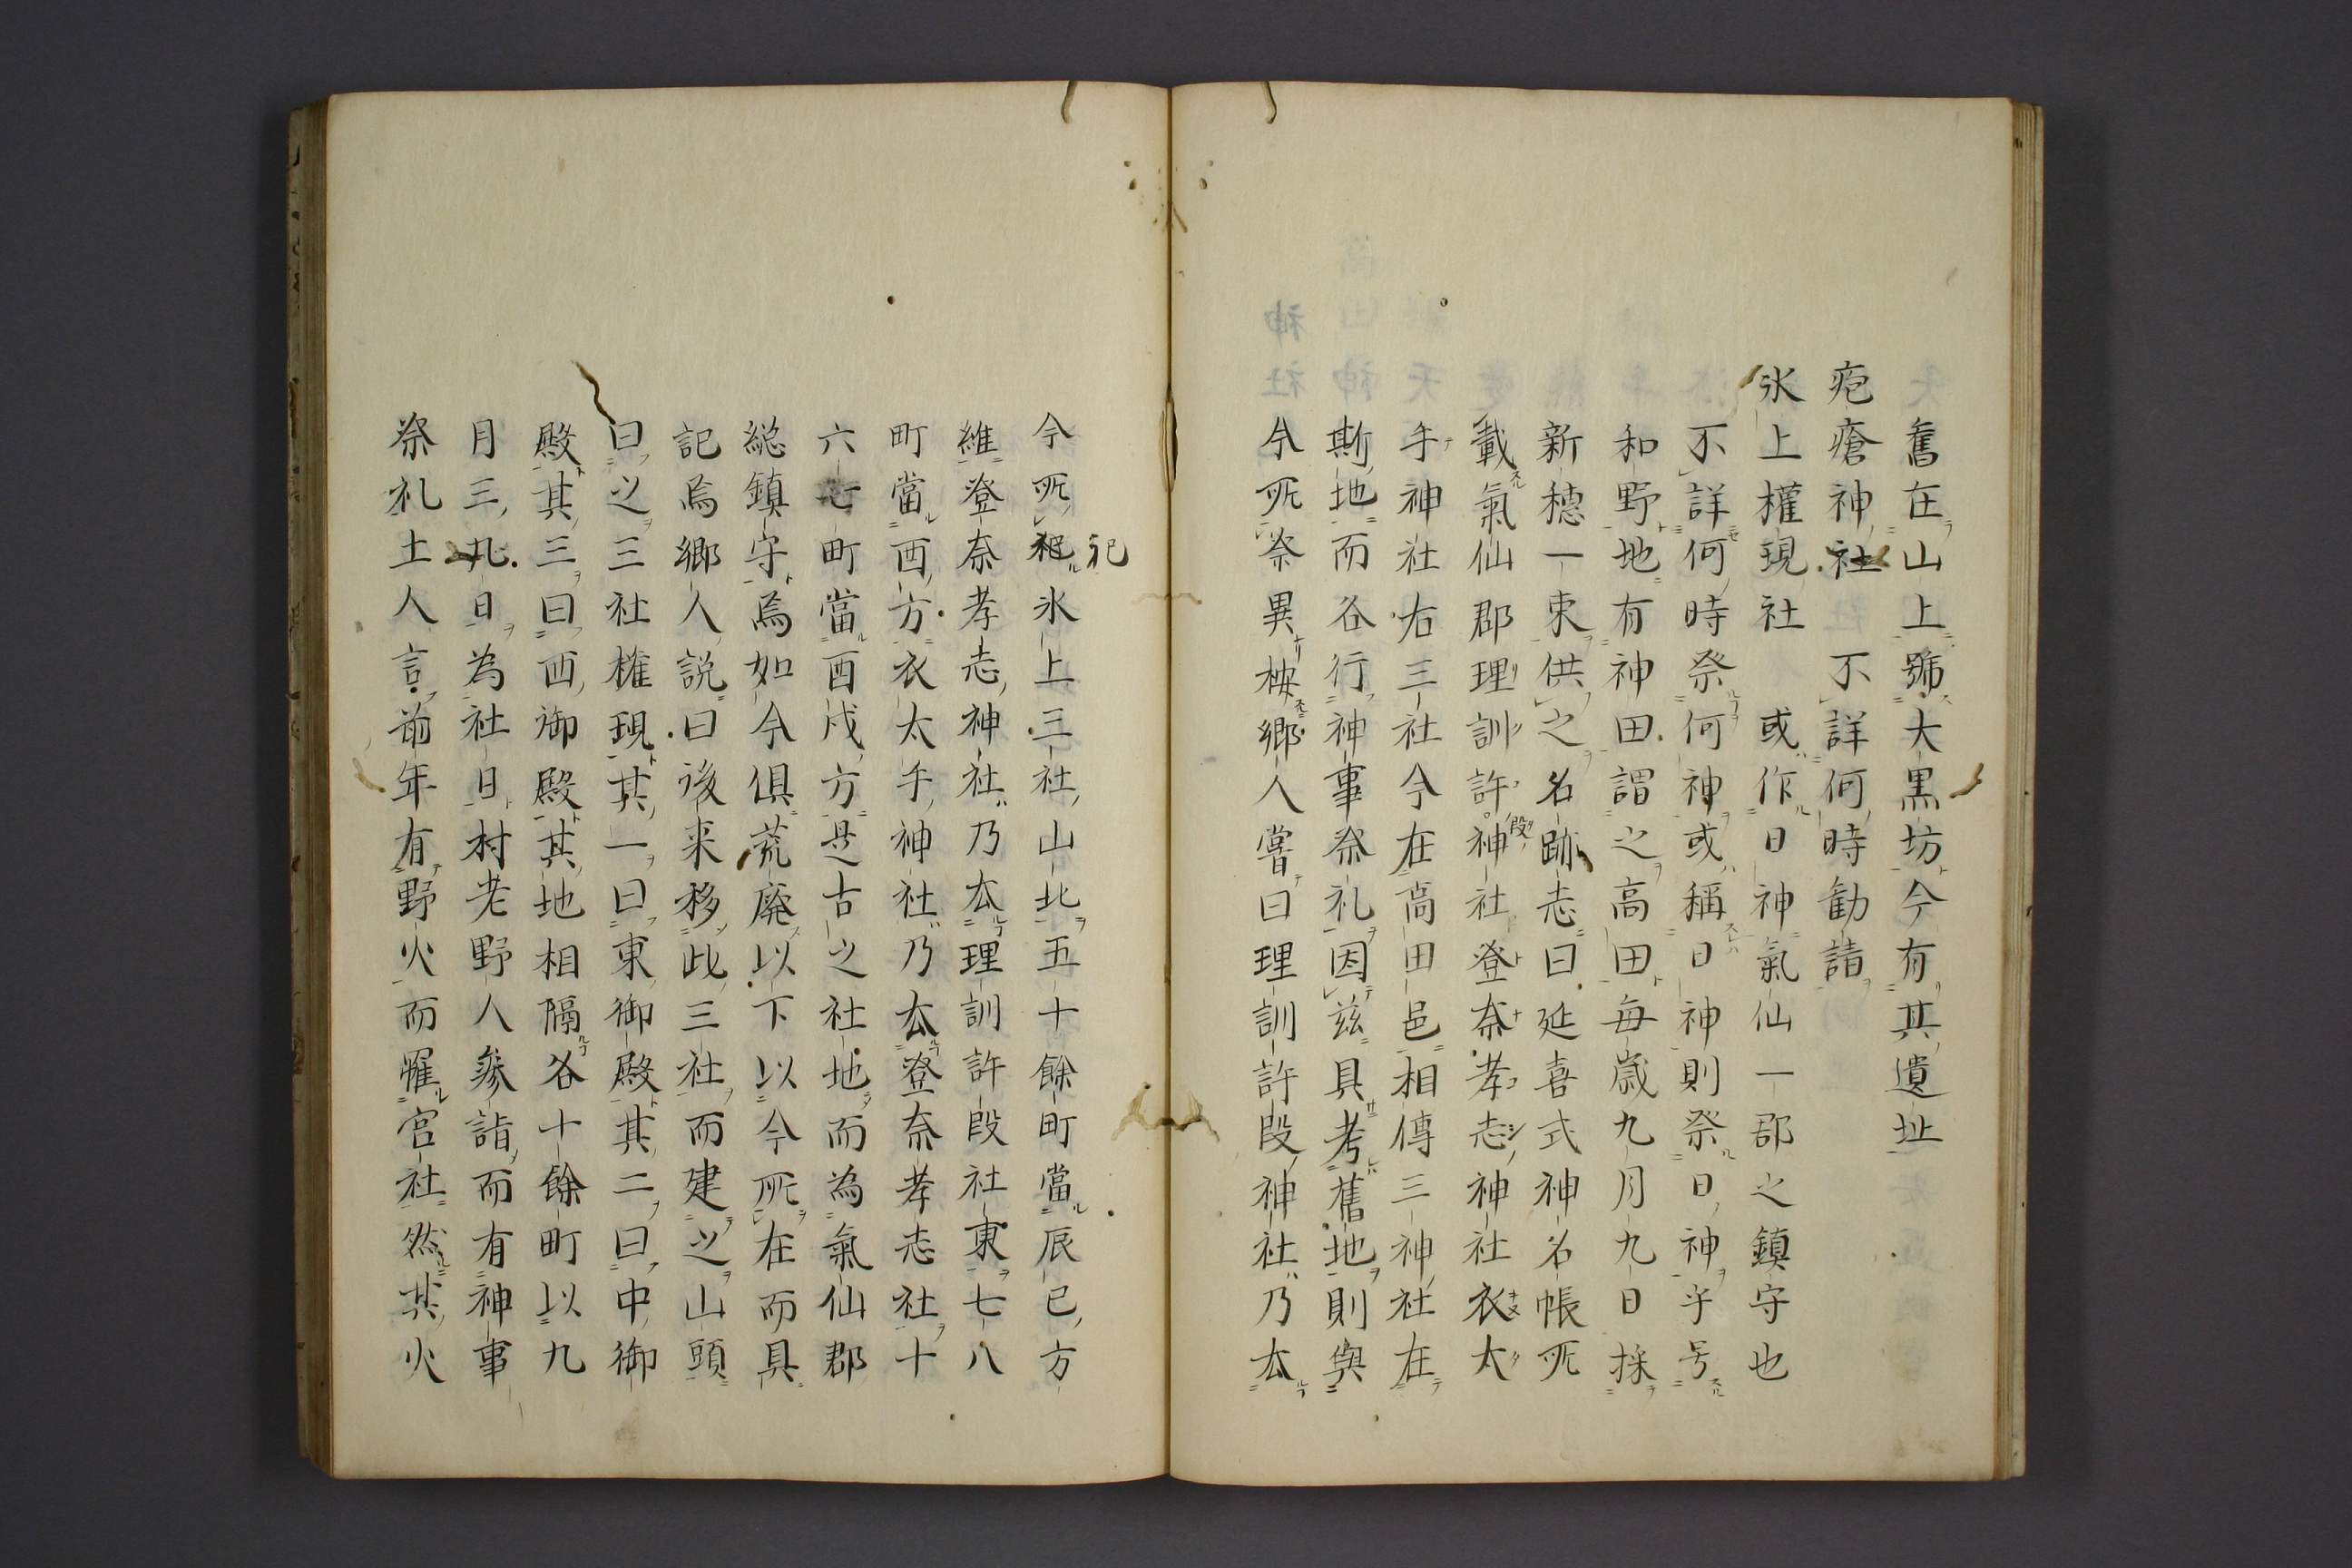 舊在山上號大黒坊今有其遺址
疱瘡神社　不詳何時勧請
氷上權現社　或作日神氣仙一郡之鎮守也
不詳何時祭何神或稱日神則祭日神乎号
和野地有神田謂之高田毎歳九月九日採
新穂一束供之名跡志曰延喜式神名帳所
載氣仙郡理訓許段神社登奈孝志神社衣太
手神社右三社今在高田邑相傳三神社在
斯地而各行神事祭礼因茲具考舊地則與
今所祭異按郷人嘗曰理訓許段神社乃厷
今所祀氷上三社山北五十餘町當辰巳方
維登奈孝志神社乃厷理訓許段社東七八
町當酉方衣太手神社乃厷登奈孝志社十
六七町當酉戌方是古之社地而為氣仙郡
総鎮守焉如今倶荒廃以下以今所在而具
記焉郷人説曰後来移此三社而建之山頭
曰之三社権現其一曰東御殿其二曰中御
殿其三曰西御殿其地相隔各十餘町以九
月三九日為社日村老野人参詣而有神事
祭礼土人言前年有野火而罹宮社然其火